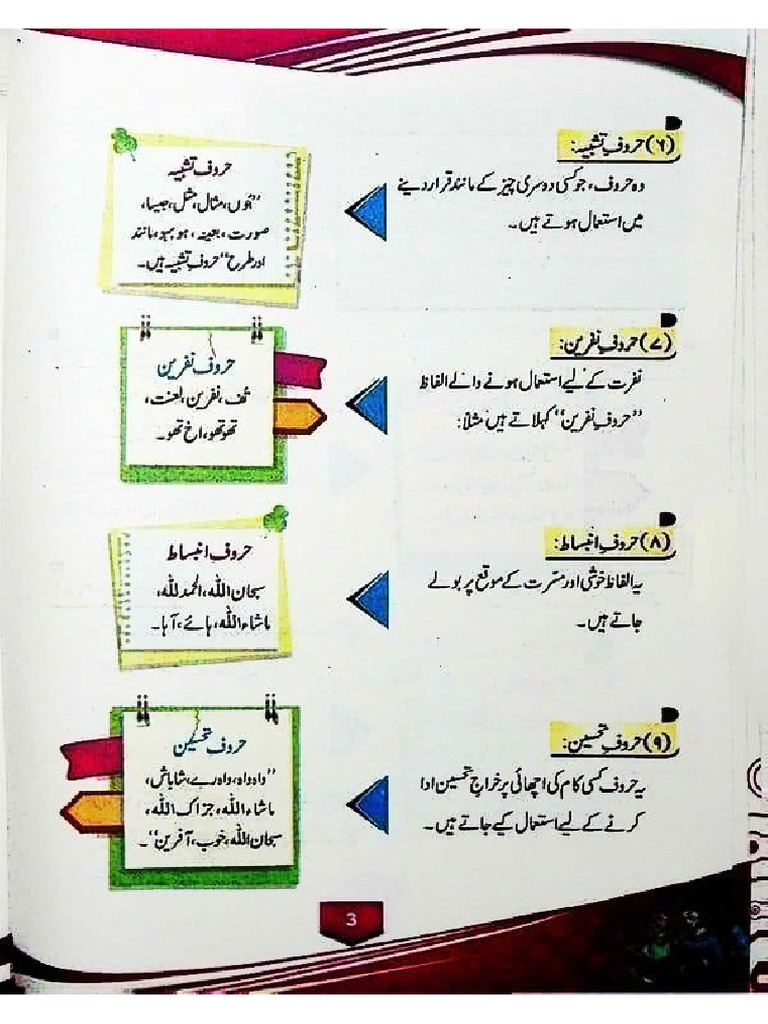 (۶) حروفِ تشبیہ:
وہ حروف، جو کسی دوسری چیز کے مانند قرار دینے
میں استعمال ہوتے ہیں۔
حروف تشبیہ
”جُوں، مثال، مثل، جیسا،
صورت، بعینہٖ، ہو بہو، مانند
اور طرح“ حروفِ تشبیہ ہیں۔
(۷) حروفِ نفرین:
نفرت کے لیے استعمال ہونے والے الفاظ
”حروفِ نفرین“ کہلاتے ہیں مثلاً:
حروف نفرین
تُف، نفرین، لعنت،
تھوتھو، اخ تھو۔
(۸) حروفِ انبساط:
یہ الفاظ خوشی اور مسّرت کے موقع پر بولے
جاتے ہیں۔
حروف انبساط
سبحان اللہ، الحمد للہ،
ماشاء اللہ، ہائے، آہا۔
(۹) حروفِ تحسین:
یہ حروف کسی کام کی اچھائی پر خراجِ تحسین ادا
کرنے کے لیے استعمال کیے جاتے ہیں۔
حروف تحسین
”واہ واہ، واہ رے، شاباش،
ماشاء اللہ، جزاک اللہ،
سبحان اللہ، خوب، آفرین“۔
3